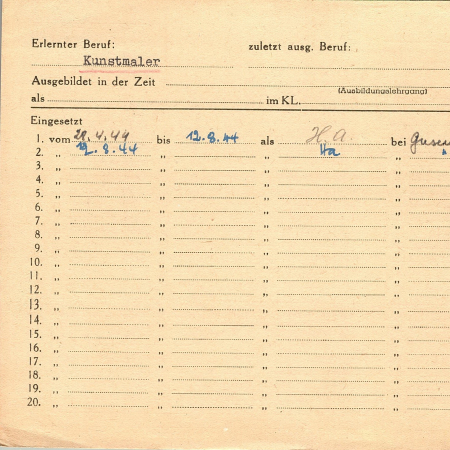 Erlernter Beruf: zuletzt ausg. Beruf:
Kunstmaler
Ausgebildet in der Zeit
(Ausbildungslehrgang)
als im KL.
Eingesetzt
1. vom 29.4.44 bis 12.8.44 als H.A. bei Gusen
2. „ 12.8.44 „ „ Ha „ "
3. „ „ „ „
4. „ „ „ „
5. „ „ „ „
6. „ „ „ „
7. „ „ „ „
8. „ „ „ „
9. „ „ „ „
10. „ „ „ „
11. „ „ „ „
12. „ „ „ „
13. „ „ „ „
14. „ „ „ „
15. „ „ „ „
16. „ „ „ „
17. „ „ „ „
18. „ „ „ „
19. „ „ „ „
20. „ „ „ „